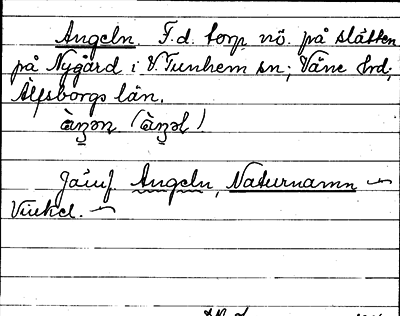 Angeln. F.d. torp nö. på slätten
på Nygård i V. Tunhem sn; Väne hrd;
Älfsborgs län.
Jämf. Angeln, Naturnamn –
Vinkel. –